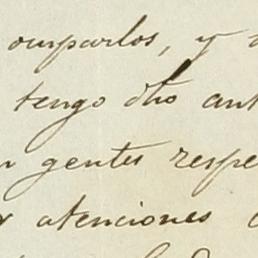 ouparlos, y
tengo dho ant
gentes respe
atenciones